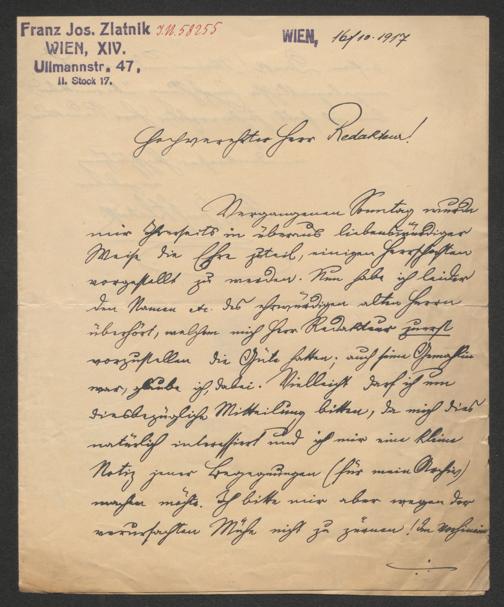 Franz Jos. Zlatnik J.N. 58255
WIEN, XIV.
Ullmannstr. 47,
II. Stock 17.
WIEN, 16/10. 1917
Hochverehrter Herr Redakteur!
Vergangenen Sonntag wurde
mir Ihrerseits in überaus liebenswürdiger
Weise die Ehre zuteil, einigen Herrschaften
vorgestellt zu werden. Nun habe ich leider
den Namen etc. des ehrwürdigen alten Herrn
überhört, welchem mich Herr Redakteur zuerst
vorzustellen die Güte hatten, auch seine Gemahlin
war, glaube ich, dabei. Vielleicht darf ich um
diesbezügliche Mitteilung bitten, da mich dies
natürlich interessiert und ich mir eine kleine
Notiz jener Begegnungen (für mein Archiv)
machen möchte. Ich bitte mir aber wegen der
verursachten Mühe nicht zu zürnen! Im